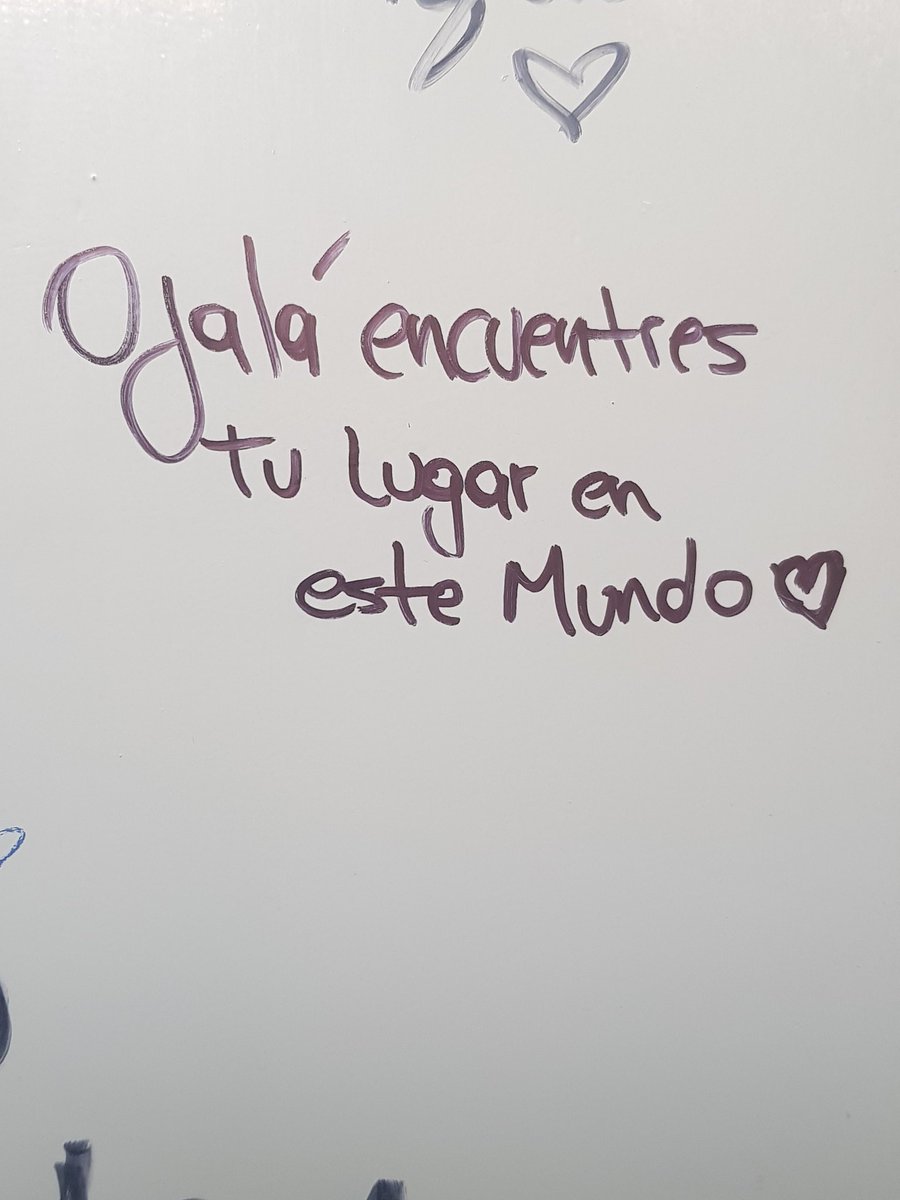 Ojalá encuentres
tu lugar en
este Mundo